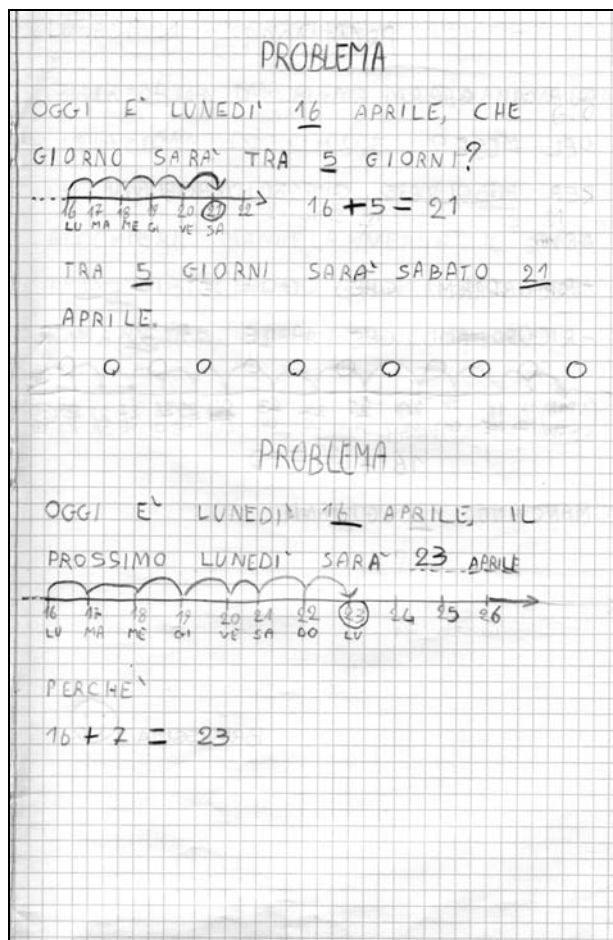 PROBLEMA
OGGI E` LUNEDI` 16 APRILE, CHE
GIORNO SARA` TRA 5 GIORNI?
16 17 18 19 20 21 22 16 + 5 = 21
LU MA ME GI VE SA
TRA 5 GIORNI SARA` SABATO 21
APRILE.
PROBLEMA
OGGI E` LUNEDI` 16 APRILE, IL
PROSSIMO LUNEDI` SARA` 23 APRILE
16 17 18 19 20 21 22 23 24 25 26
LU MA ME GI VE SA DO LU
PERCHE`
16 + 7 = 23